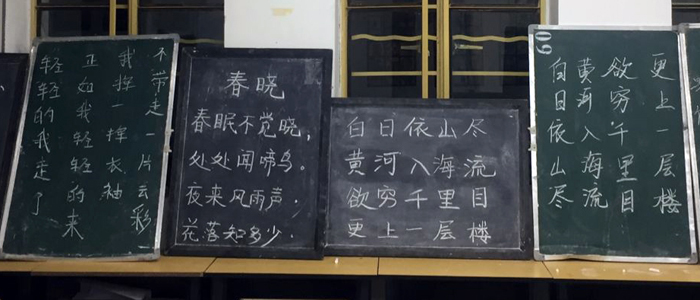 轻轻的我走了
正如我轻轻的来
我挥一挥衣袖
不带走一片云彩
春晓
春眠不觉晓，
处处闻啼鸟。
夜来风雨声．
花落知多少．
白日依山尽
黄河入海流
欲穷千里目
更上一层楼
09
白日依山尽
黄河入海流
欲穷千里目
更上一层楼